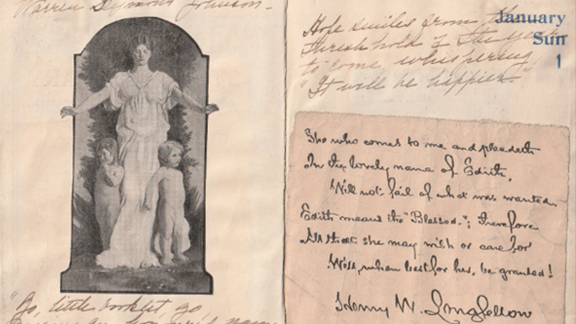 Warren Simmons Johnson.
"Go, little booklet, go,
Hope smiles from the
threshhold of the year
to come whispering
"It will be happier"
January
Sun
1
She who comes to me and pleadeth
In the lovely name of Edith,
Will not fail of what was wanted.
Edith means the "Blessed."; therefore
All that she may wish or care for
Will, when best for her, be granted!
Henry W. Longfellow